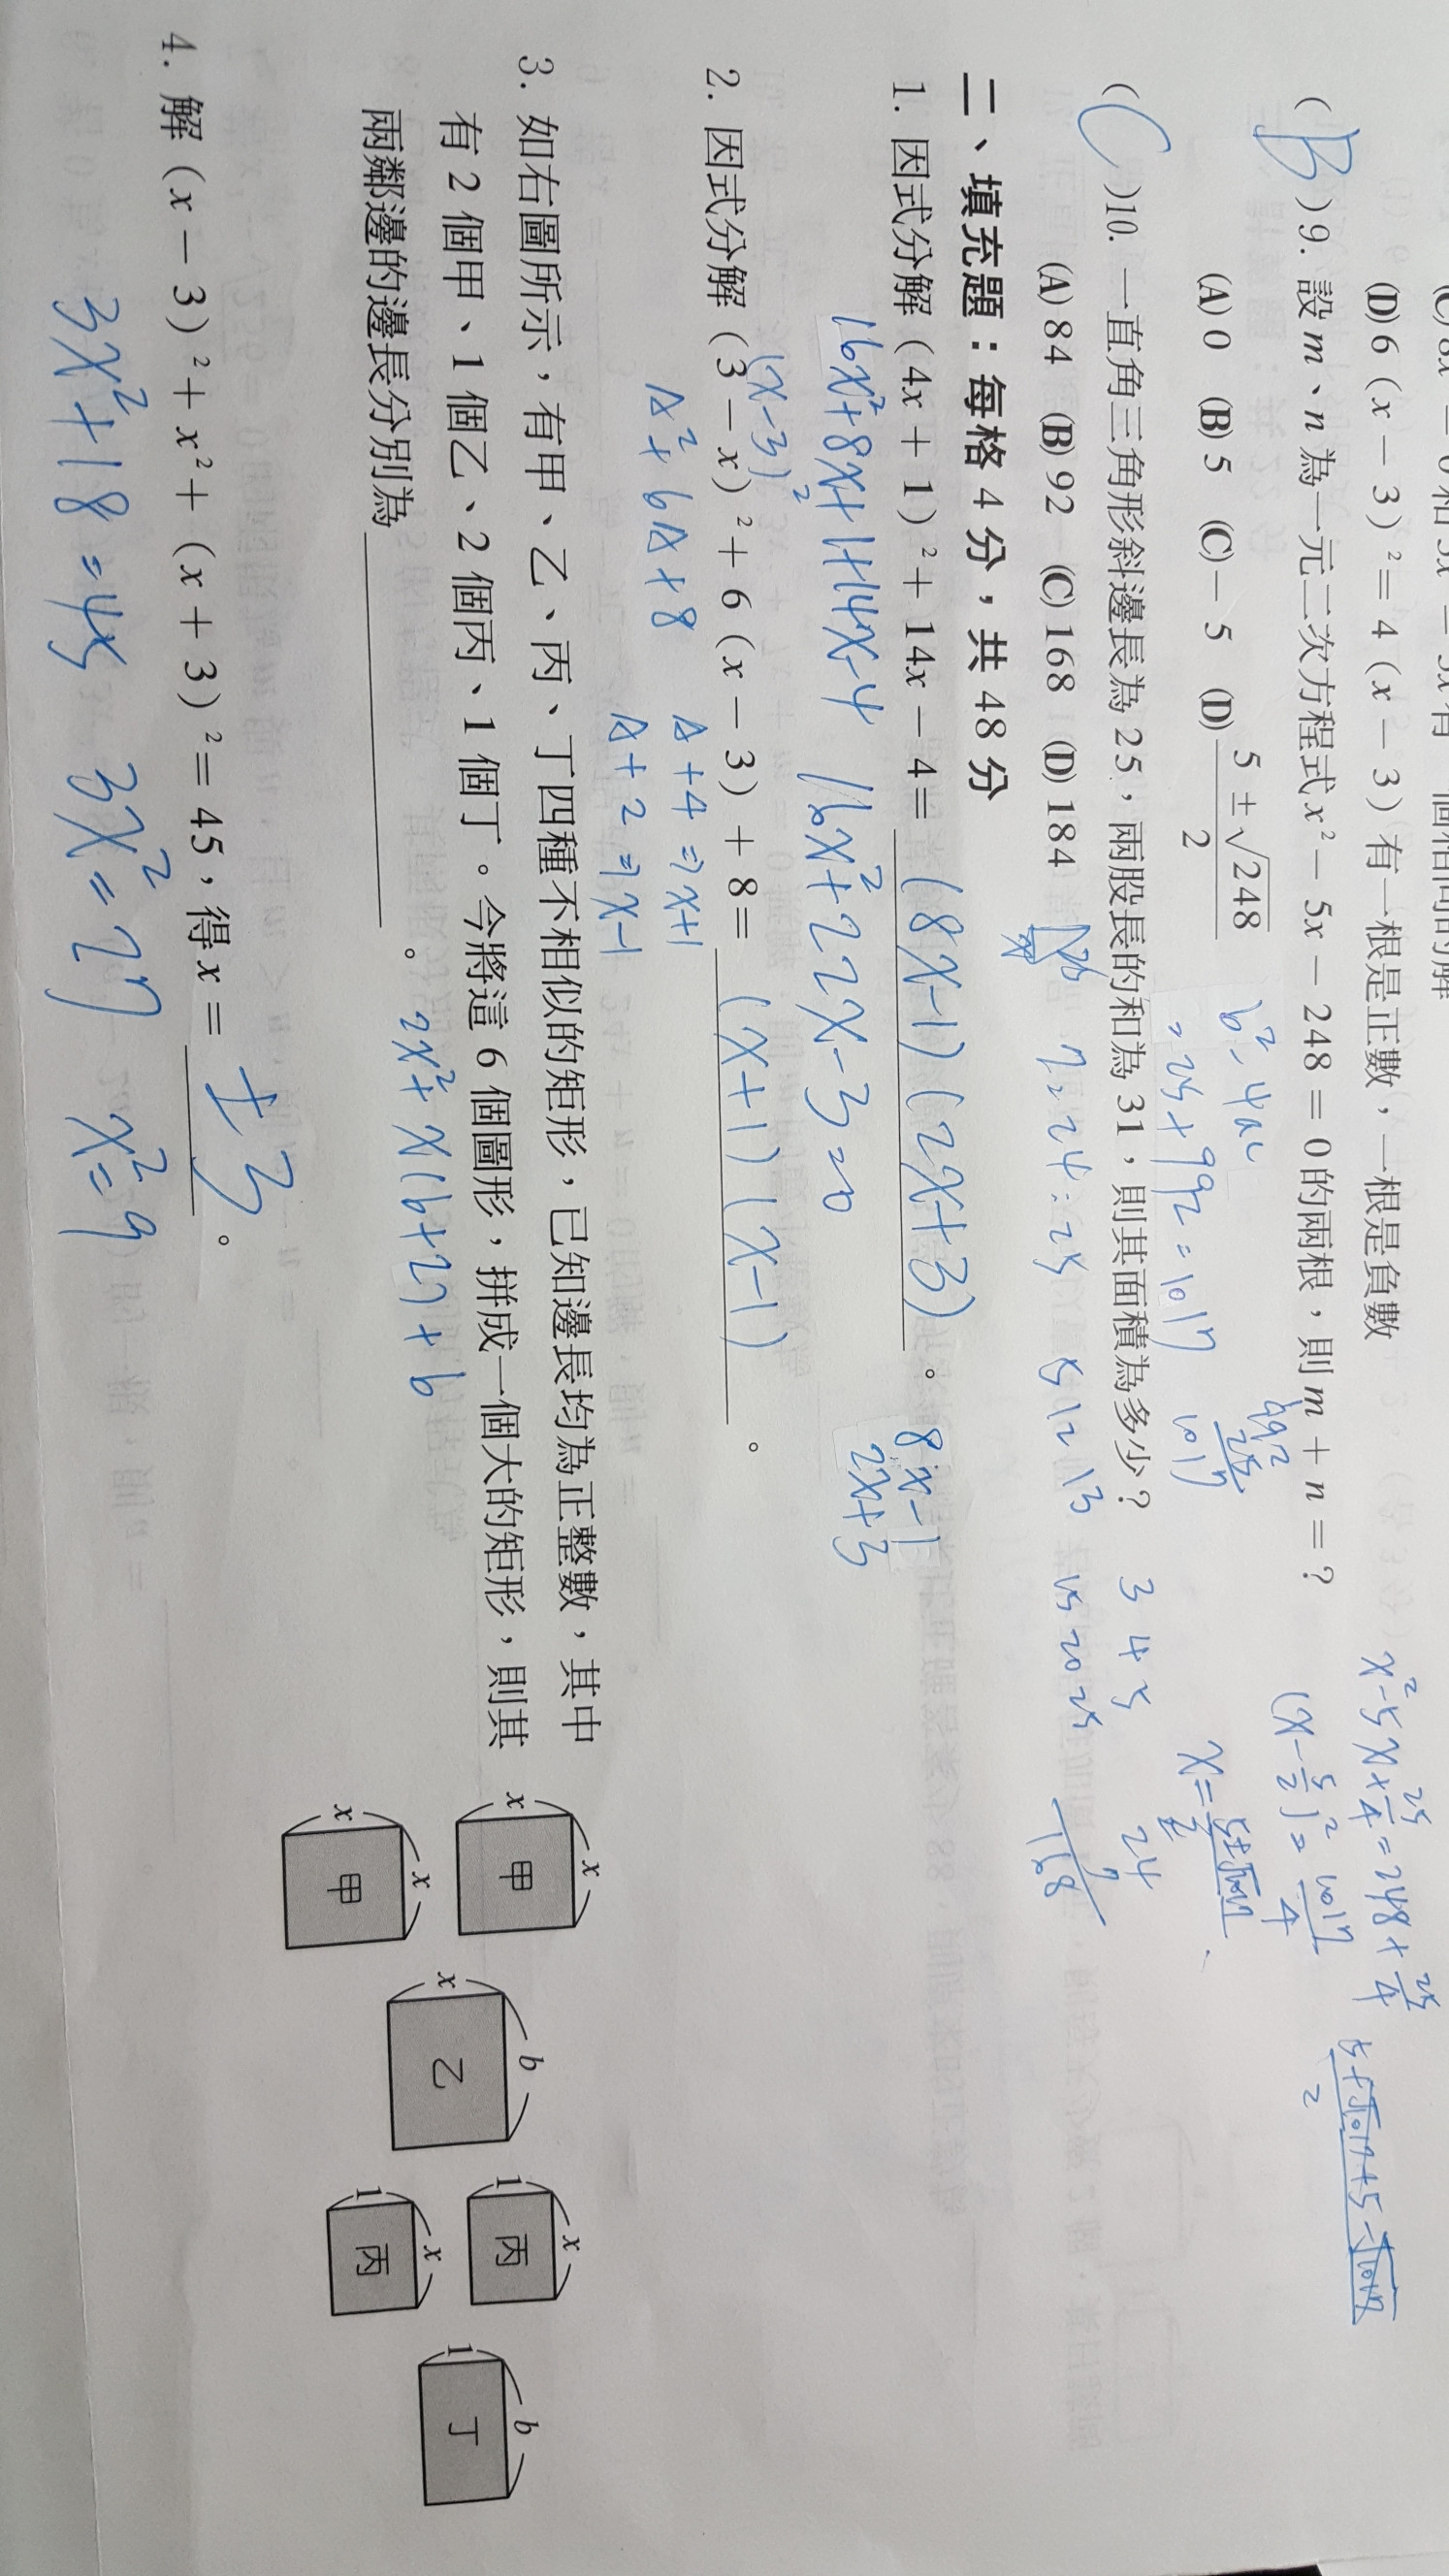 (D) 6 ( x − 3 ) ² = 4 ( x − 3 ) 有一根是正數，一根是負數
x²-5x+25/4=248+25/4
( B ) 9. 設 m、n 為一元二次方程式 x² − 5x − 248 = 0 的兩根，則 m + n = ?
(x-5/2)²=1017/4
(A) 0 (B) 5 (C) − 5 (D) 5 ± √248 / 2
b²-4ac
=25+992=1017
992
25
1017
( C )10. 一直角三角形斜邊長為 25，兩股長的和為 31，則其面積為多少？
3 4 5
(A) 84 (B) 92 (C) 168 (D) 184
7=24:25 5 12 13 15 20 25
24
7
168
二、填充題：每格 4 分，共 48 分
1. 因式分解 ( 4x + 1 ) ² + 14x − 4 = (8x-1)(2x+3) 。
8x-1
2x+3
16x²+8x+1+14x-4 16x²+22x-3=0
(x-3)²
2. 因式分解 ( 3 − x ) ² + 6 ( x − 3 ) + 8 = (x+1)(x-1) 。
A²+6A+8 A+4⇒x+1
A+2⇒x-1
3. 如右圖所示，有甲、乙、丙、丁四種不相似的矩形，已知邊長均為正整數，其中
有 2 個甲、1 個乙、2 個丙、1 個丁。今將這 6 個圖形，拼成一個大的矩形，則其
兩鄰邊的邊長分別為 。
2x²+x(b+2)+b
x x 甲
x x 甲
x b 乙
1 x 丙
1 x 丙
1 b 丁
4. 解 ( x − 3 ) ² + x² + ( x + 3 ) ² = 45，得 x = ±3 。
3x²+18=45 3x²=27 x²=9